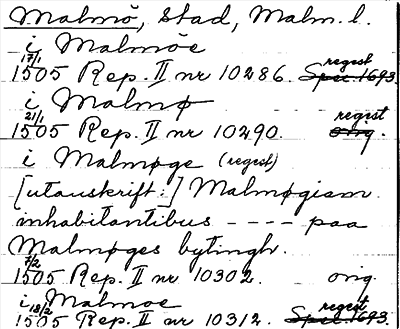 Malmö, stad, Malm. l.
i Malmöe
17/1 regest
1505 Rep. II nr 10286. Spec. 1693.
i Malmø
21/1 regist
1505 Rep. II nr 10290. orig.
i Malmøge (regest)
[utanskrift:] Malmøgiam
inhabitantibus - - - - paa
Malmøges bytingh.
7/2
1505 Rep. II nr 10302. orig.
i Malmoe
18/2 regest
1505 Rep. II nr 10312. Spec. 1693.